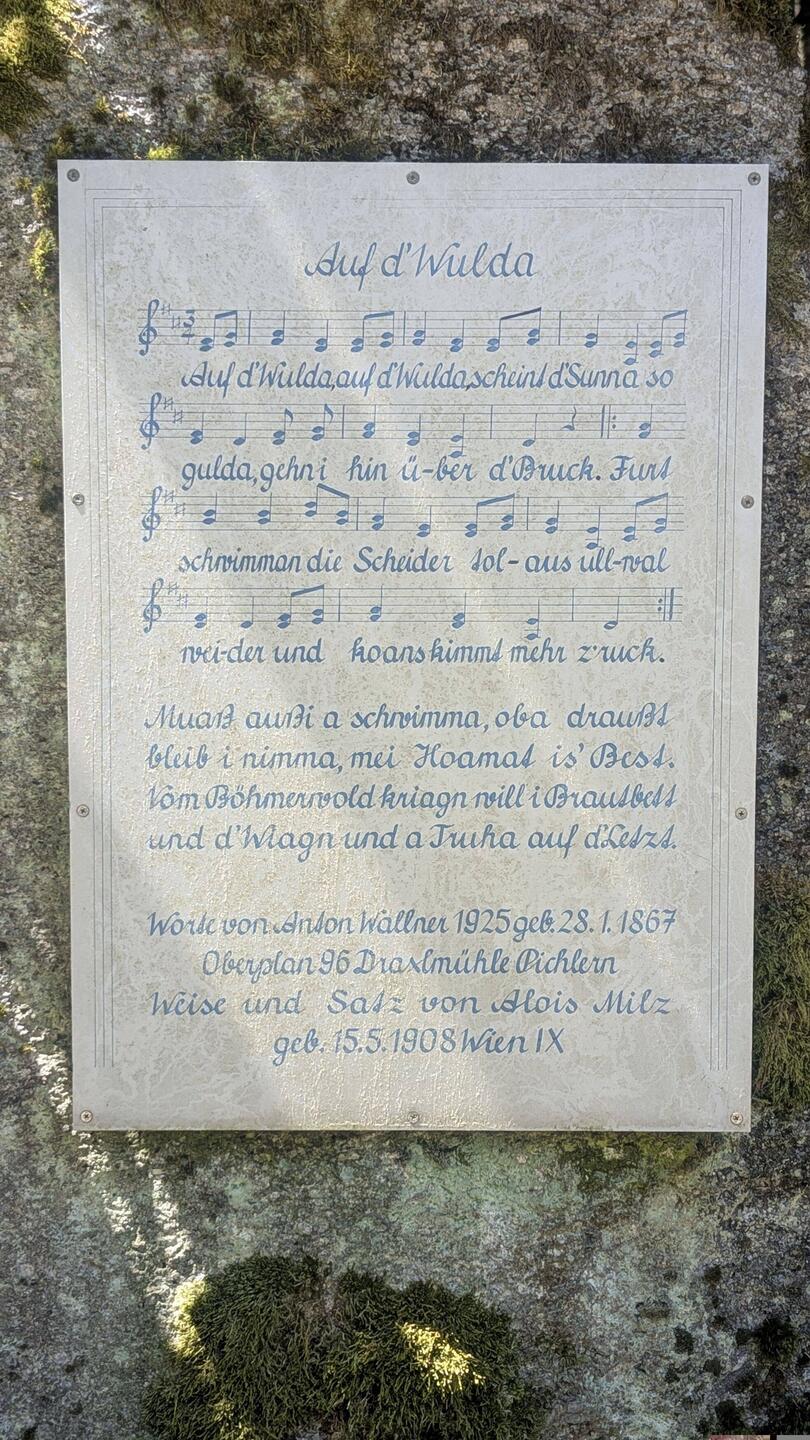 Auf d'Wulda
Auf d'Wulda, auf d'Wulda, scheint d'Sunna so
gulda, gehn i hin ü-ber d'Bruck. Furt
schwimman die Scheider tol-aus üll-wal
wei-der und koans kimmt mehr z'ruck.
Muaß außi a schwimma, oba draußt
bleib i nimma, mei Hoamat is' Best.
Vom Böhmerwold kriagn will i Brautbett
und d'Wiagn und a Truha auf d'Letzt.
Worte von Anton Wallner 1925 geb. 28. 1. 1867
Oberplan 96 Draxlmühle Pichlern
Weise und Satz von Alois Milz
geb. 15.5.1908 Wien IX